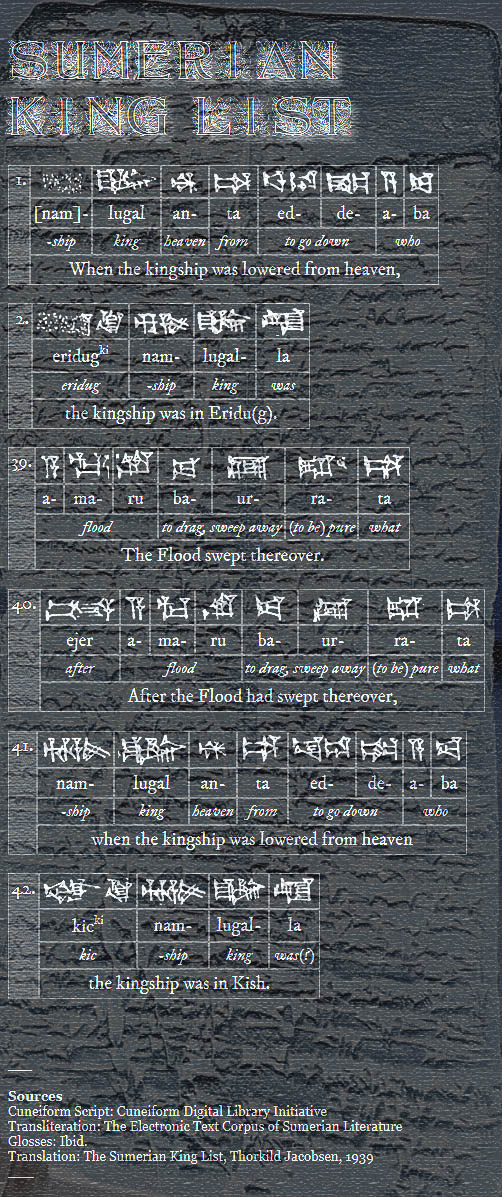 SUMERIAN
KING LIST
1.
[nam]- lugal an- ta ed- de- a- ba
-ship king heaven from to go down who
When the kingship was lowered from heaven,
2.
eridug^ki nam- lugal- la
eridug -ship king was
the kingship was in Eridu(g).
39.
a- ma- ru ba- ur- ra- ta
flood to drag, sweep away (to be) pure what
The Flood swept thereover.
40.
ejer a- ma- ru ba- ur- ra- ta
after flood to drag, sweep away (to be) pure what
After the Flood had swept thereover,
41.
nam- lugal an- ta ed- de- a- ba
-ship king heaven from to go down who
when the kingship was lowered from heaven
42.
kic^ki nam- lugal- la
kic -ship king was(?)
the kingship was in Kish.
Sources
Cuneiform Script: Cuneiform Digital Library Initiative
Transliteration: The Electronic Text Corpus of Sumerian Literature
Glosses: Ibid.
Translation: The Sumerian King List, Thorkild Jacobsen, 1939